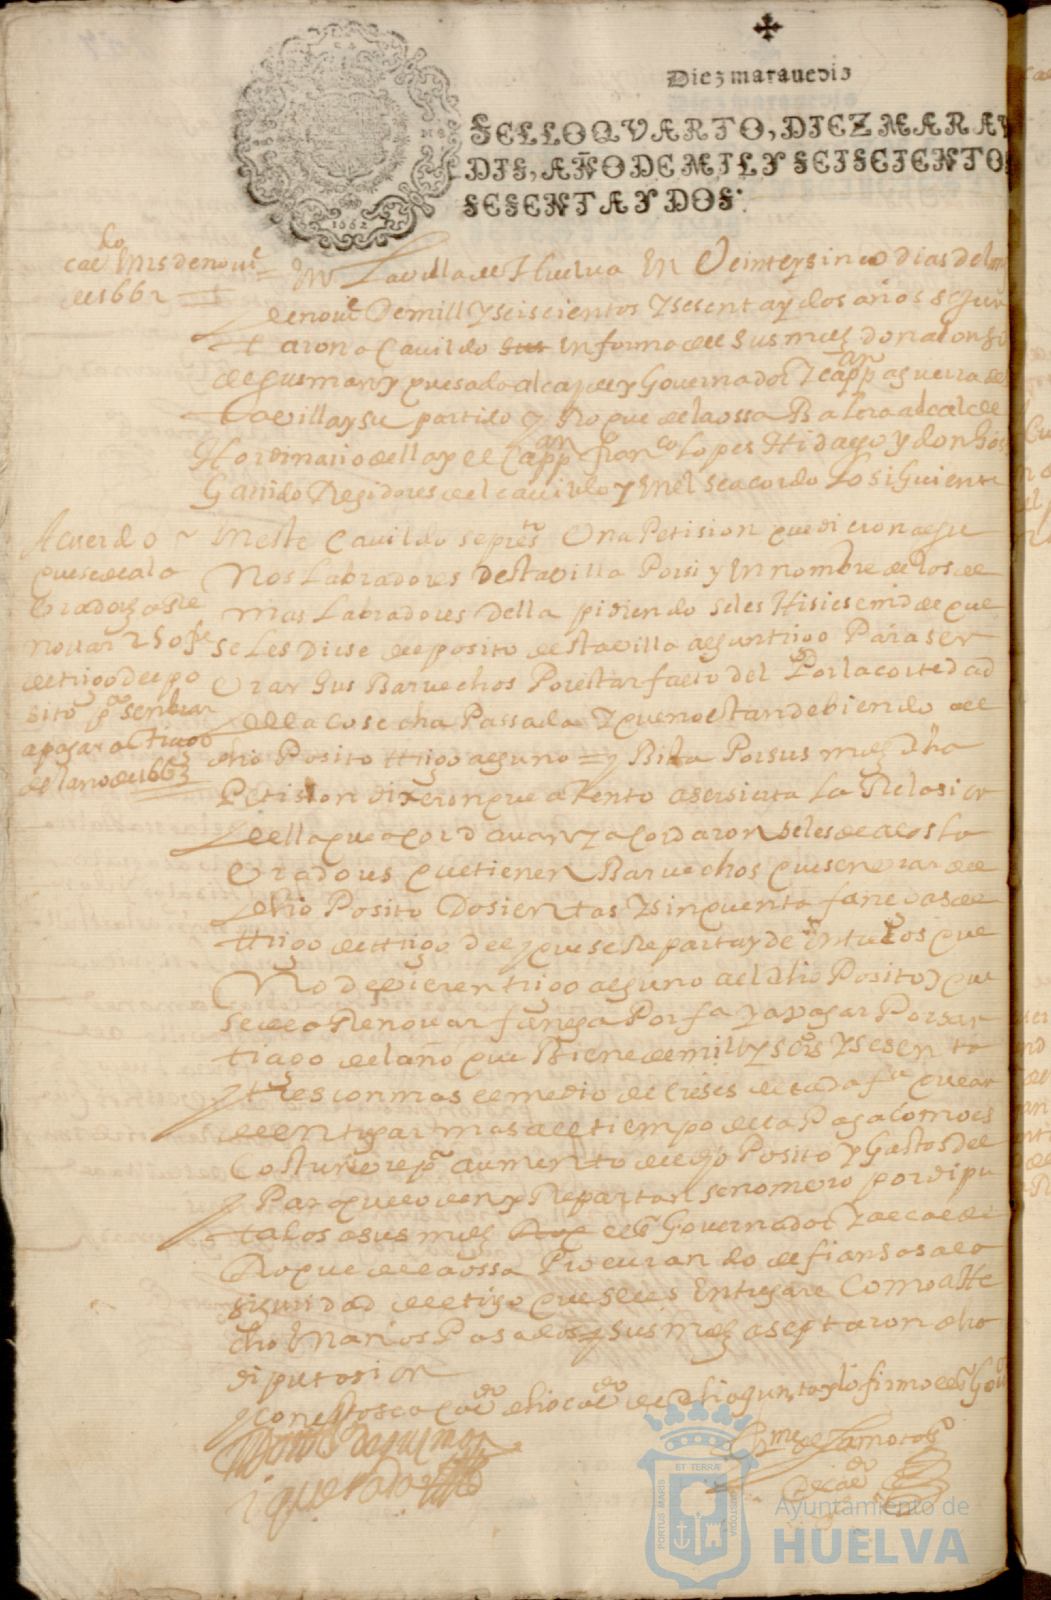 Diez maravedis
SELLO QVARTO, DIEZ MARAV
DIS, AÑO DE MIL Y SEISCIENTO
SESENTA Y DOS.
1662
cavdo En 25 de nove
de 1662
En La villa de Huelva En Veinteysinco dias del m
de nove De mill Y seiscientos Y sesenta y dos años se jun
taron a Cavildo En forma de Sus mds don alonso
de gusman y quesada alcayde y Governador Y capp an a guerra de
ta villa y su partido y Roque de la ossa alcalde
Hordinario della y el Capp an fran co Lopes Hidalgo y don
Garrido Regidores del cavildo y En el se acordo Lo siguiente
Acuerdo
que se de a la
bradores a Re
novar 250 fs
de trigo del po
sito pa senbrar
a pagar a Santiago
del año de 1663
En este Cavildo se presto Una Petision que dieron algu
nos Labradores desta villa Por si y En nombre de los de
mas Labradores della pidiendo se les Hisiese md de que
se Les Diese del posito desta villa algun trigo Para sen
brar Sus Barvechos Por estar faltos del Por la cortedad
de la cosecha Pasada Y que no estan debiendo al
dho Posito trigo alguno = y Bista Por sus mds dha
Petision dixeron que atento a ser sierta La Relasion
della que acordavan Y acordaron se les de a los la
bradores que tienen Barvechos que senbrar del
dho Posito Dosientas Y sinquenta fanegas de
trigo de trigo del y que se Reparta y de Entre los que
No deBieren trigo alguno al dho Posito y que
se de a Renovar fanega Por fa Y a pagar Por san
tiago del año que Biene de mill y seis os Y sesenta
y tres con mas el medio de creses de cada fa que an
de entregar mas al tiempo de la Paga como es
Costunbre pa aumento del dho Posito y Gastos del
y Para que lo den y Repartan se nomBro por dipu
tados a sus mds el Sr Governador Y alcalde
Roque de la ossa Procurando de fiansas a la
siguridad del trigo que se les Entregare Como a He
cho En años Pasados y sus mds aseptaron dha
diputasion
y con esto se a cavdo dho cavdo de dhi a gunto y lo firmo el Sr Gov
Alonso de gusman
i quesada
Bme de Zamora
Ayuntamiento de
HUELVA
PORTUS MARIS
ET TERRÆ
CUSTODIA